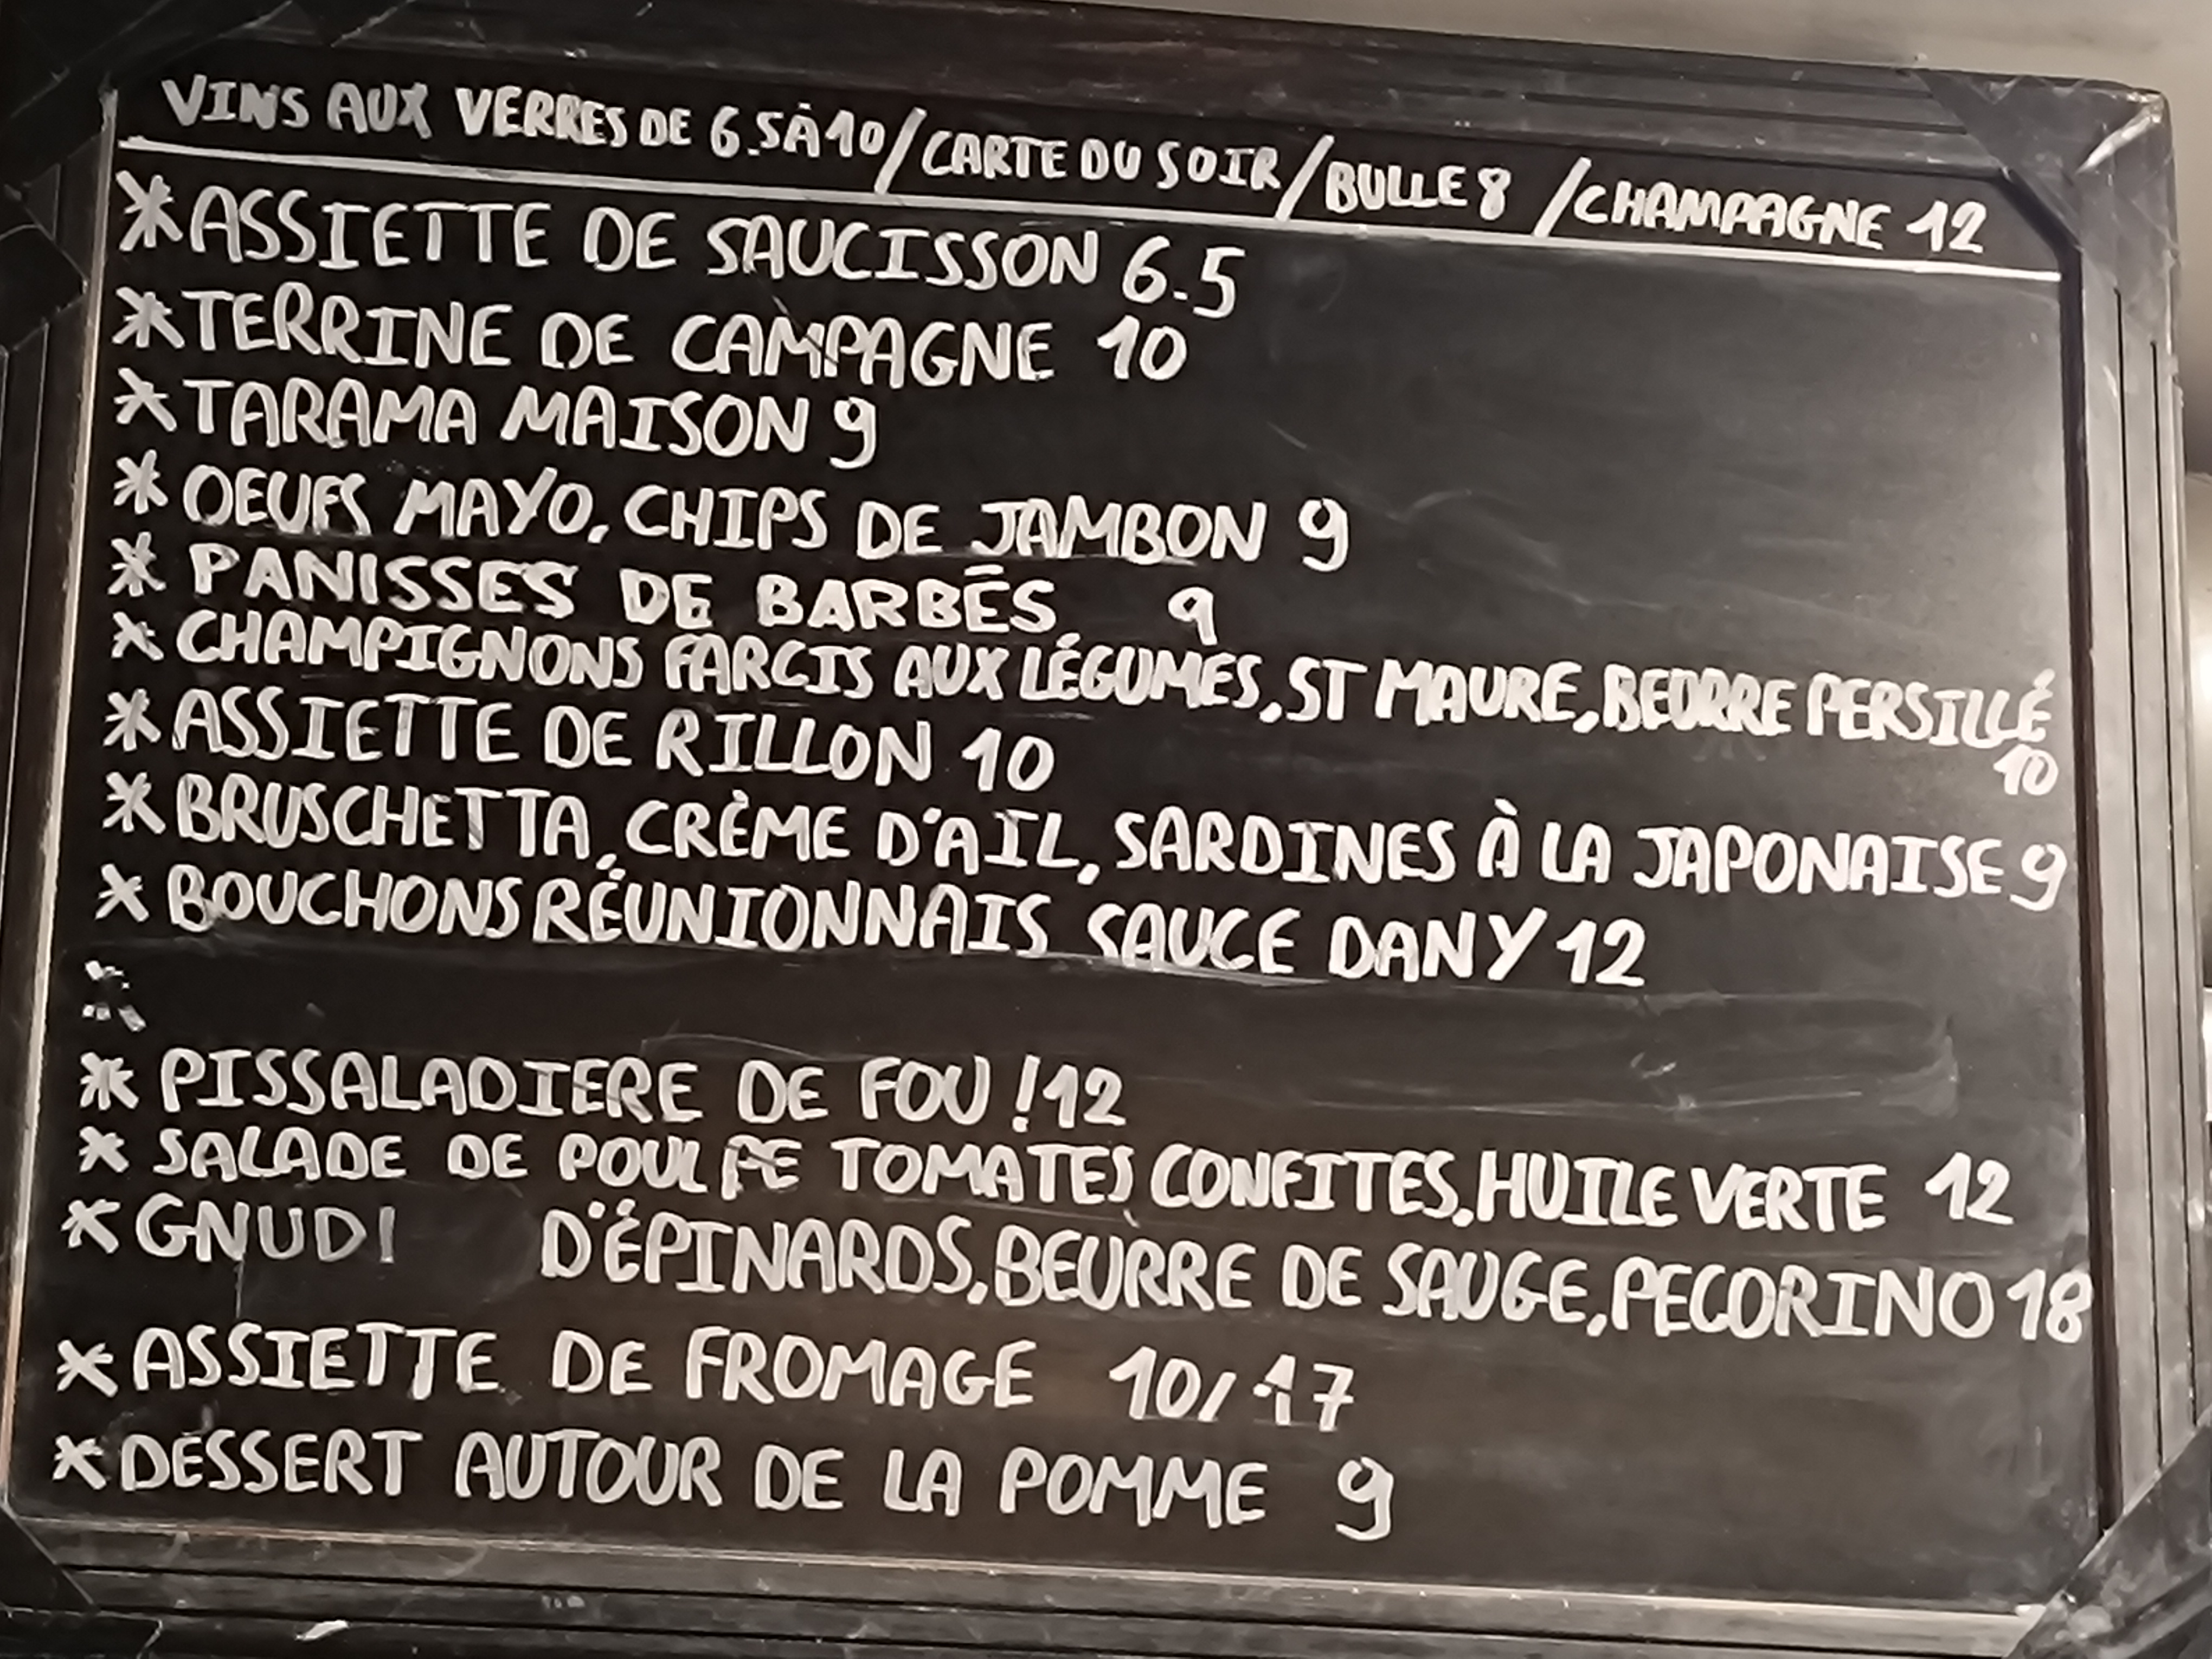 VINS AUX VERRES DE 6.5À10/CARTE DU SOIR/BULLE 8 /CHAMPAGNE 12
*ASSIETTE DE SAUCISSON 6.5
*TERRINE DE CAMPAGNE 10
*TARAMA MAISON 9
*OEUFS MAYO, CHIPS DE JAMBON 9
*PANISSES DE BARBÈS 9
*CHAMPIGNONS FARCIS AUX LÉGUMES, ST MAURE, BEURRE PERSILLÉ
10
*ASSIETTE DE RILLON 10
*BRUSCHETTA, CRÈME D'AIL, SARDINES À LA JAPONAISE 9
*BOUCHONS RÉUNIONNAIS SAUCE DANY 12
*PISSALADIERE DE FOU ! 12
*SALADE DE POULPE TOMATES CONFITES, HUILE VERTE 12
*GNUDI D'ÉPINARDS, BEURRE DE SAUGE, PECORINO 18
*ASSIETTE DE FROMAGE 10/17
*DESSERT AUTOUR DE LA POMME 9